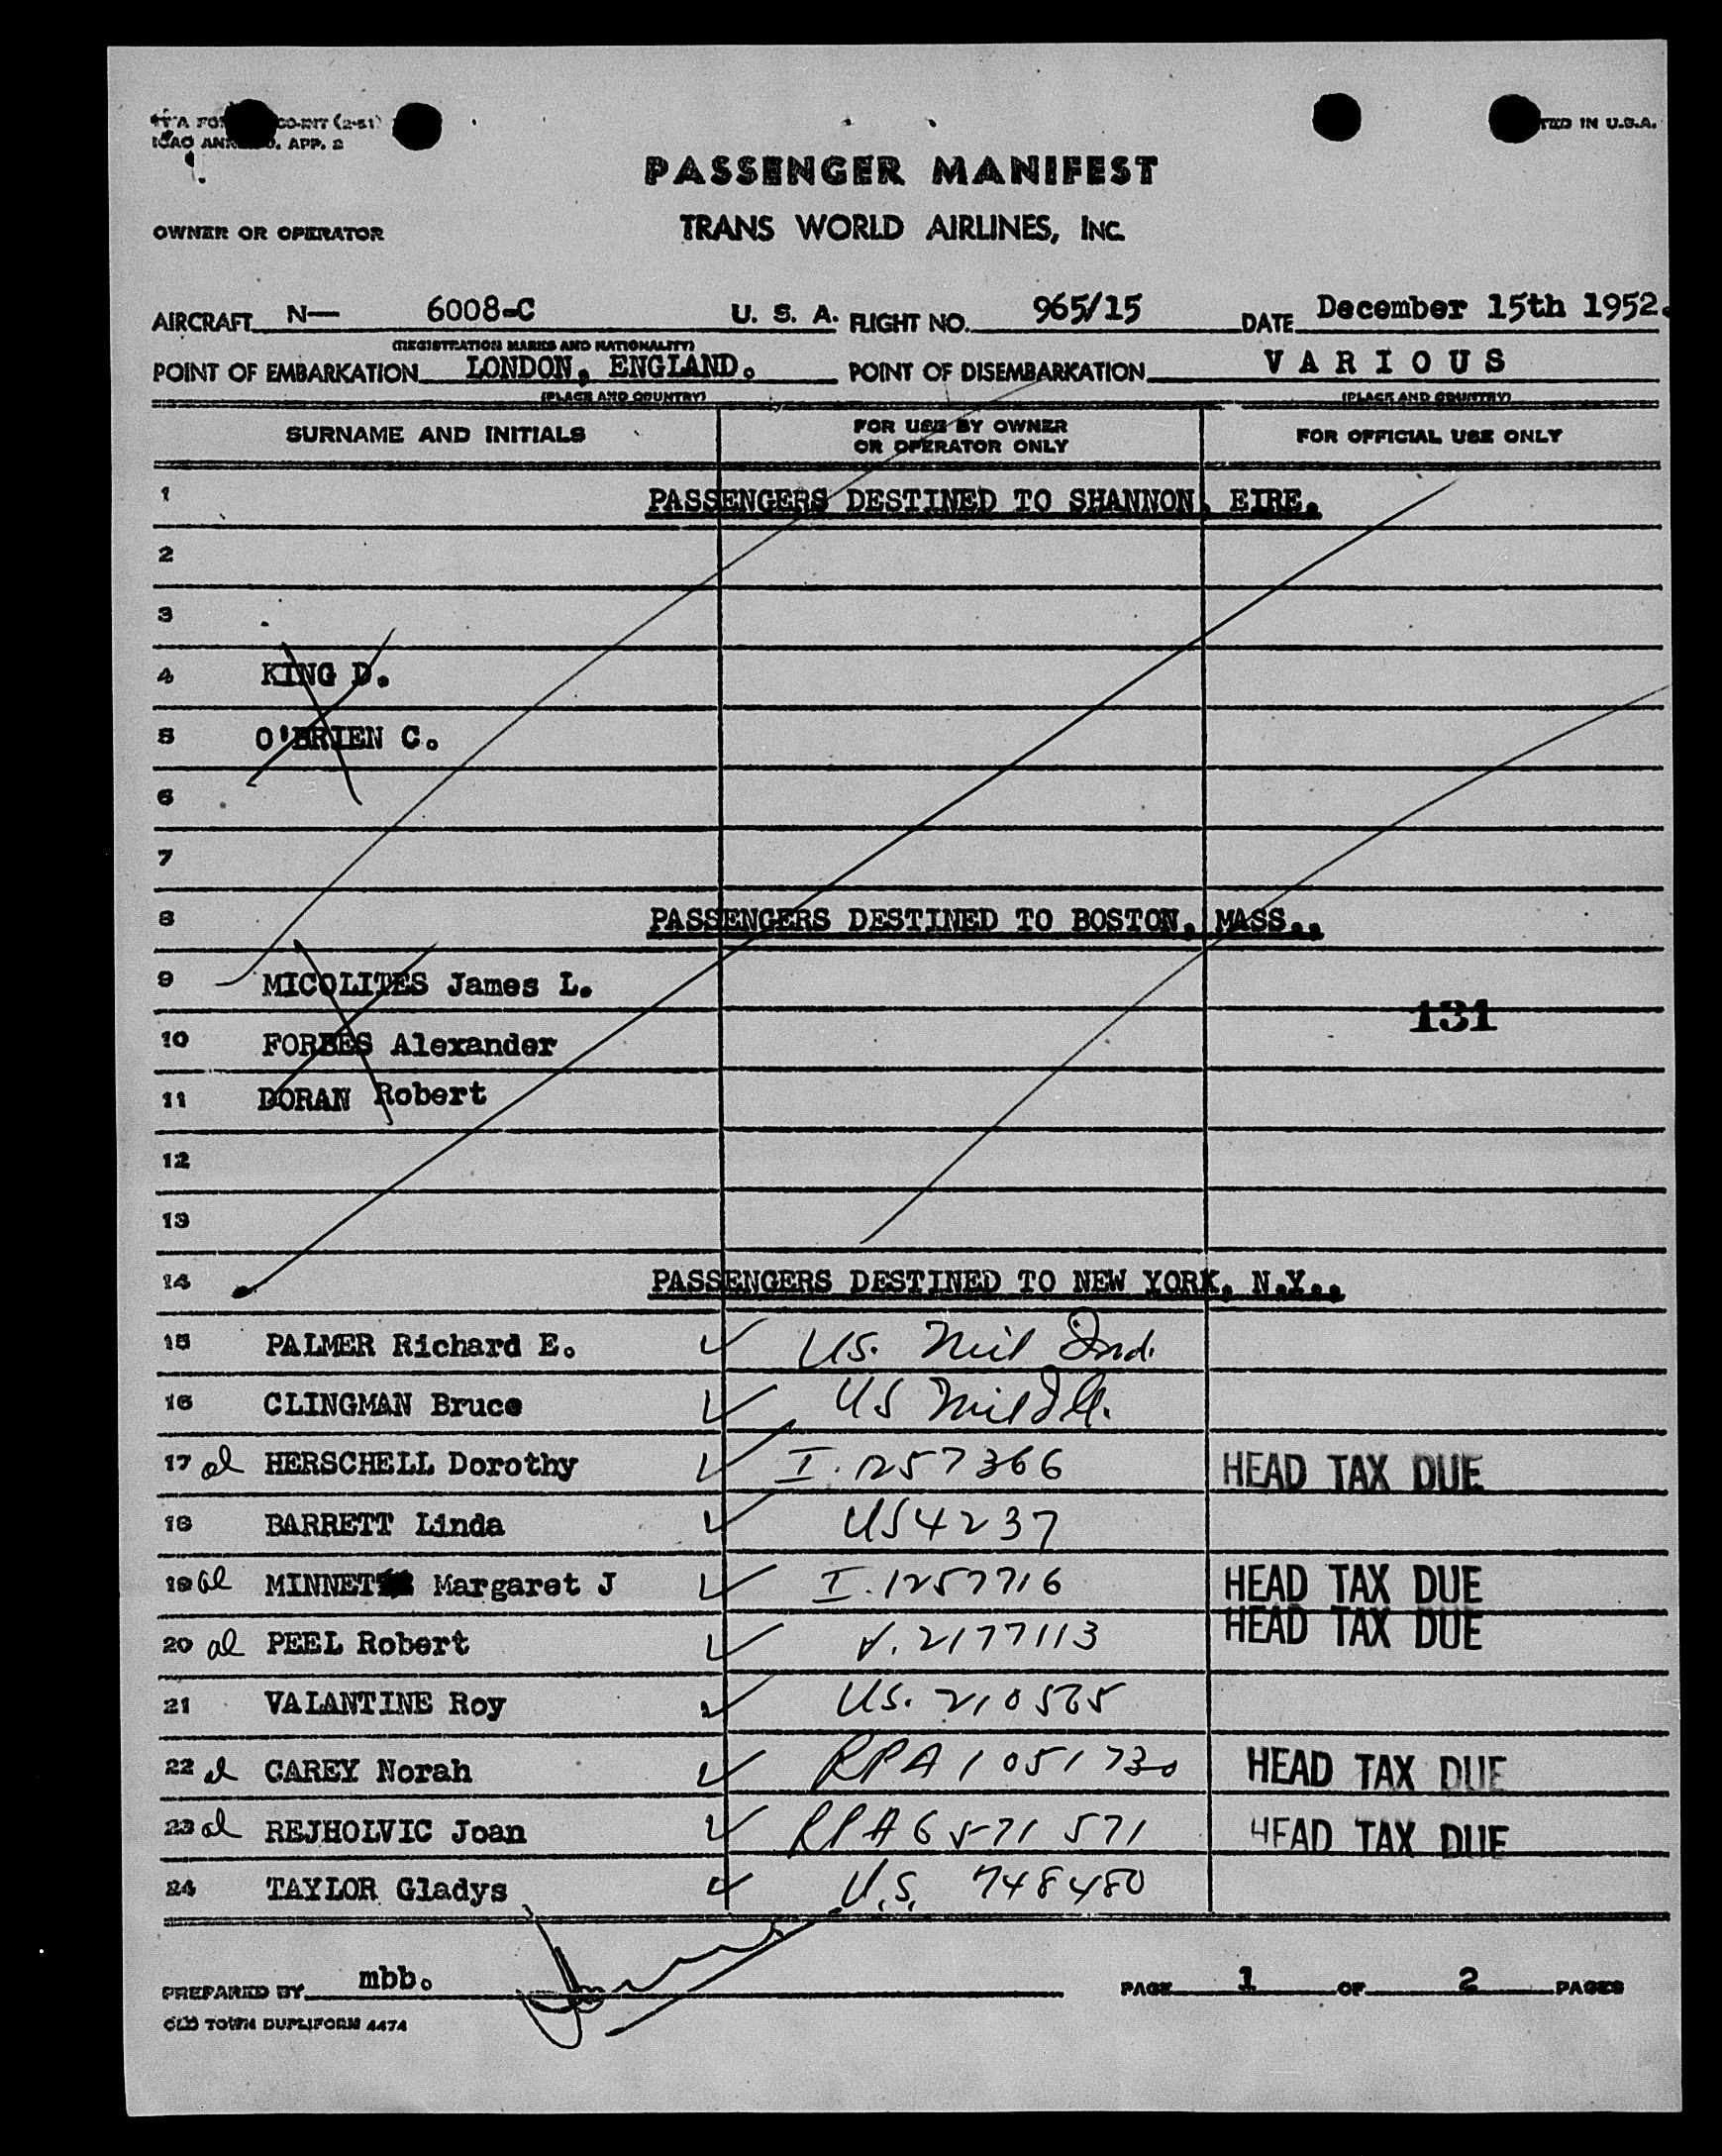 ICAO APP. 2
U.S.A.
PASSENGER MANIFEST
OWNER OR OPERATOR TRANS WORLD AIRLINES, INC.
AIRCRAFT N— 6008-C U. S. A. FLIGHT NO. 965/15 DATE December 15th 1952.
(REGISTRATION MARKS AND NATIONALITY)
POINT OF EMBARKATION LONDON, ENGLAND. POINT OF DISEMBARKATION VARIOUS
(PLACE AND COUNTRY) (PLACE AND COUNTRY)
SURNAME AND INITIALS FOR USE BY OWNER OR OPERATOR ONLY FOR OFFICIAL USE ONLY
1 PASSENGERS DESTINED TO SHANNON, EIRE.
2
3
4 KING D.
5 O'BRIEN C.
6
7
8 PASSENGERS DESTINED TO BOSTON, MASS.,
9 MICOLITES James L.
131
10 FORBES Alexander
11 DORAN Robert
12
13
14 PASSENGERS DESTINED TO NEW YORK, N.Y.,
15 PALMER Richard E. ✓ US. Mil Ind.
16 CLINGMAN Bruce ✓ US Mil
17 al HERSCHELL Dorothy ✓ I. 1257366 HEAD TAX DUE
18 BARRETT Linda ✓ US 4237
19 al MINNET Margaret J ✓ I. 1257716 HEAD TAX DUE
20 al PEEL Robert ✓ V. 2177113 HEAD TAX DUE
21 VALANTINE Roy ✓ US. 210565
22 al CAREY Norah ✓ RPA 1051730 HEAD TAX DUE
23 al REJHOLVIC Joan ✓ RPA 6571571 HEAD TAX DUE
24 TAYLOR Gladys ✓ U.S. 748480
PREPARED BY mbb. PAGE 1 OF 2 PAGES
OLD TOWN DUPLIFORM 4474